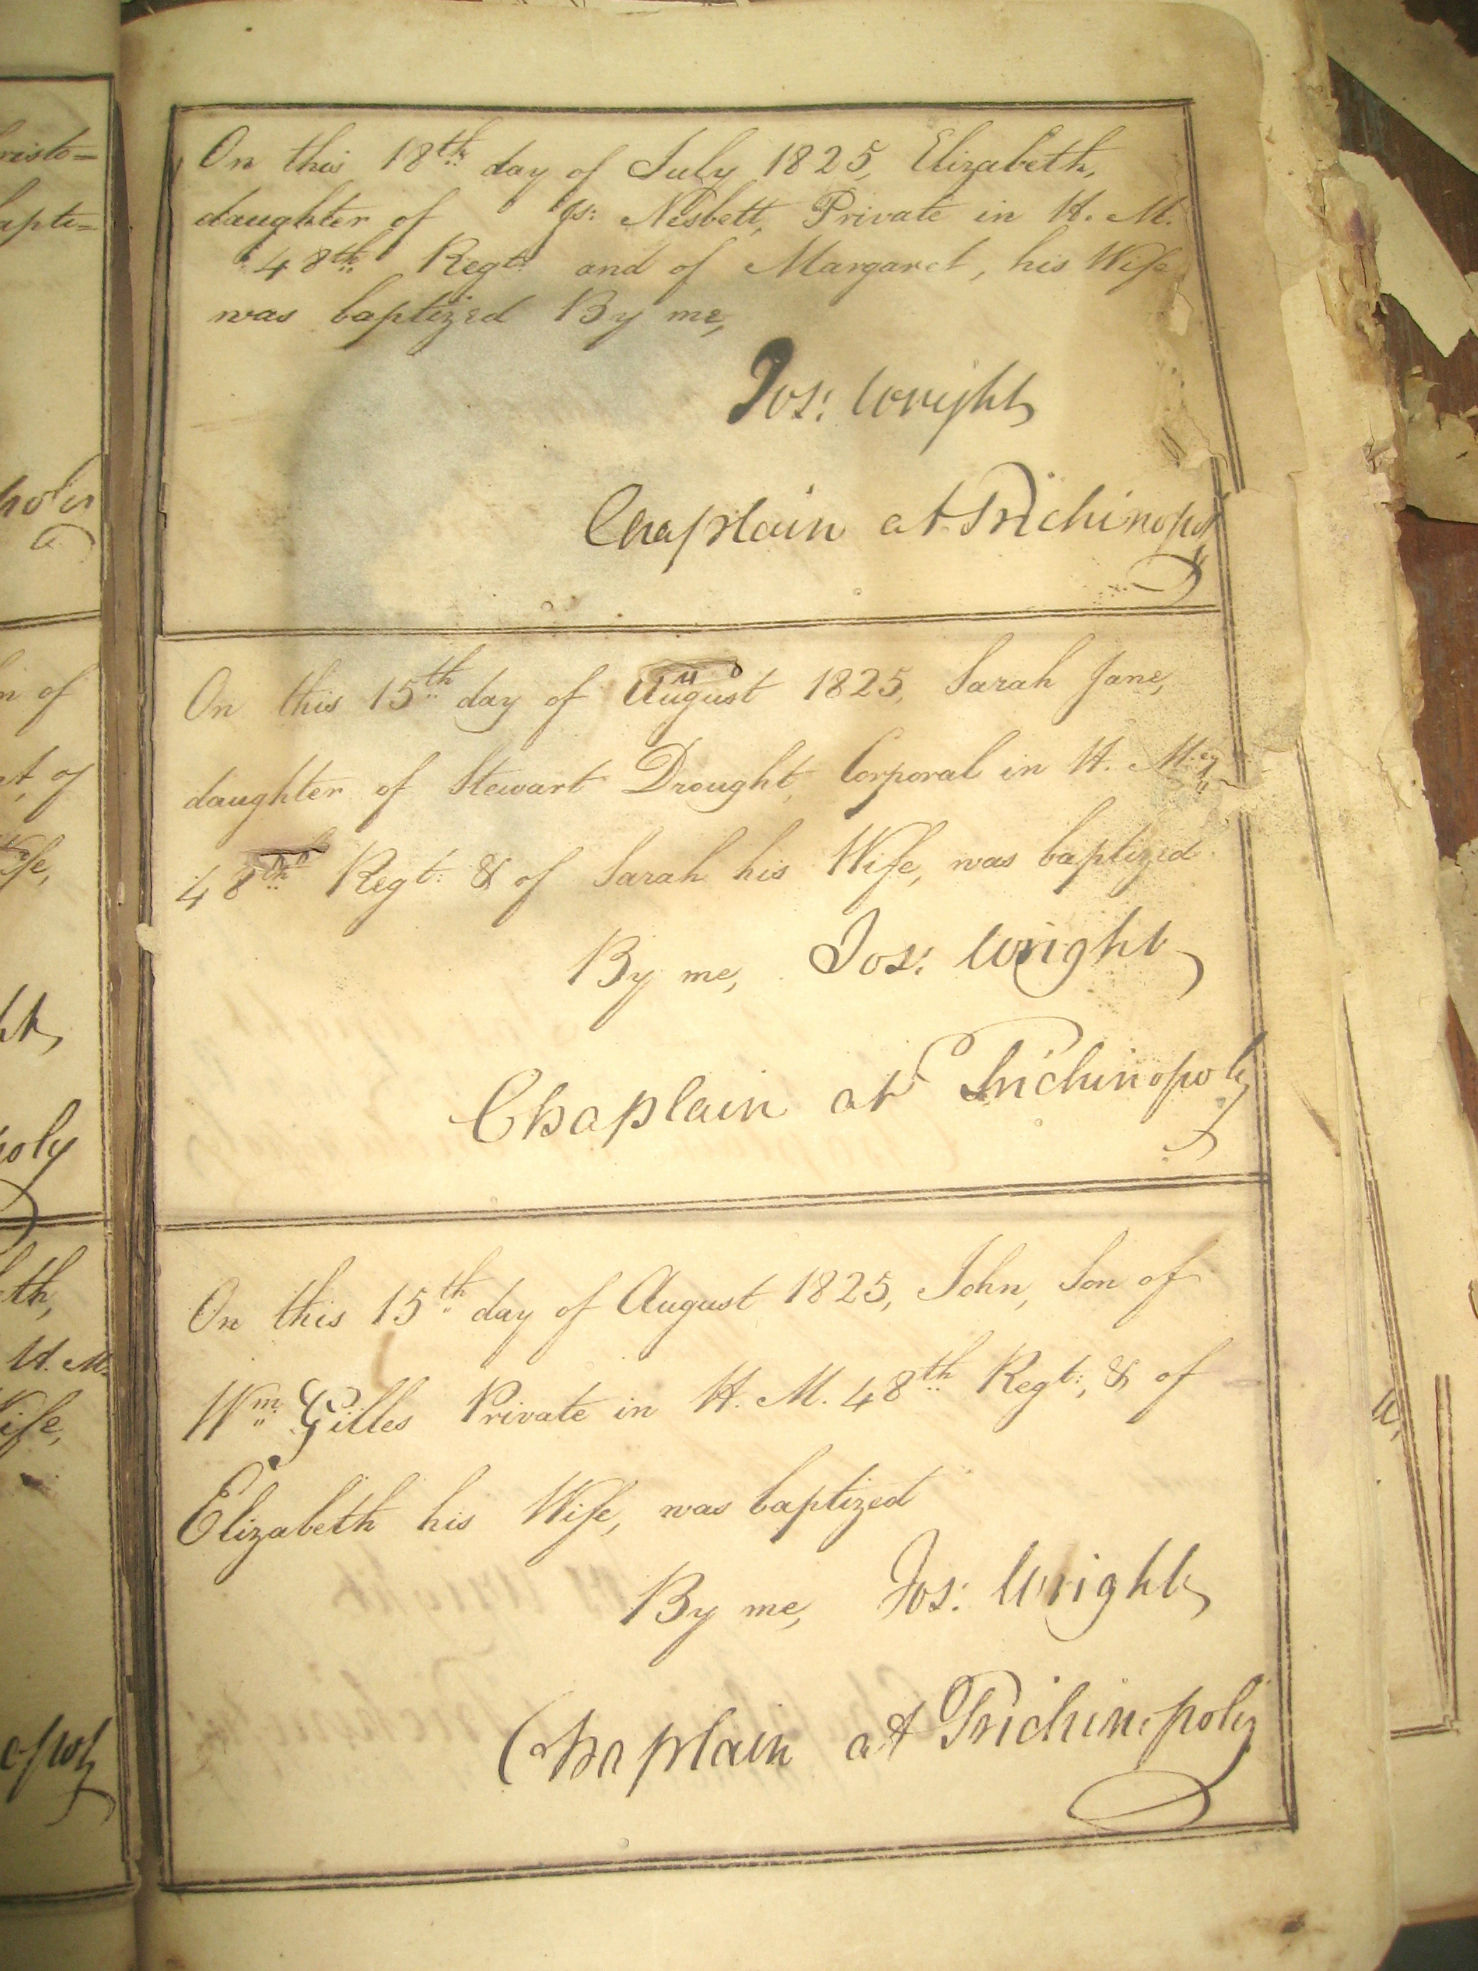 risto=
apti=
n of
of
ife,
ht,
poly
eth,
H. M.
Wife,
opoly
On this 18th day of July 1825, Elizabeth,
daughter of Js: Nesbett, Private in H. M.
48th Regt: and of Margaret, his Wife
was baptized By me,
Jos: Wright
Chaplain at Trichinopoly
On this 15th day of August 1825, Sarah Jane,
daughter of Stewart Drought, Corporal in H. M.
48th Regt: & of Sarah his Wife, was baptized
By me, Jos: Wright
Chaplain at Trichinopoly
On this 15th day of August 1825, John, Son of
Wm Gilles Private in H. M. 48th Regt:, & of
Elizabeth his Wife, was baptized
By me, Jos: Wright
Chaplain at Trichinopoly